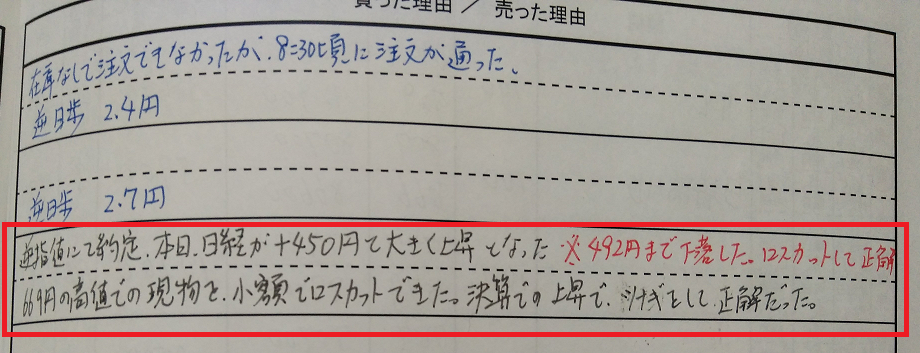 買った理由 / 売った理由
在庫なしで注文できなかったが、8:30頃に注文が通った。
逆日歩 2.4円
逆日歩 2.7円
逆指値にて約定、本日、日経が+450円で大きく上昇となった ※492円まで下落した。ロスカットして正解
669円の高値での現物を、小額でロスカットできた。決算での上昇で、しして正解だった。